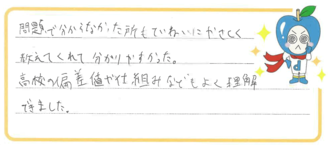 問題で分からなかった所もていねいにやさしく
教えてくれて分かりやすかった。
高校の偏差値や仕組みなどもよく理解
できました。
d